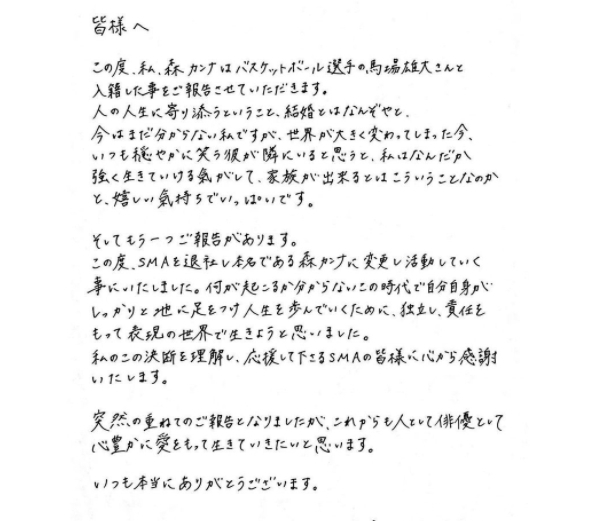 皆様へ
この度、私、森カンナはバスケットボール選手の馬場雄大さんと
入籍した事をご報告させていただきます。
人の人生に寄り添うということ、結婚とはなんぞやと、
今はまだ分からない私ですが、世界が大きく変わってしまった今、
いつも穏やかに笑う彼が隣にいると思うと、私はなんだか
強く生きていける気がして、家族が出来るとはこういうことなのか
と、嬉しい気持ちでいっぱいです。
そしてもう一つご報告があります。
この度、SMAを退社し本名である森カンナに変更し活動していく
事にいたしました。何が起こるか分からないこの時代で自分自身が
しっかりと地に足をつけ人生を歩んでいくために、独立し、責任を
もって表現の世界で生きようと思いました。
私のこの決断を理解し、応援して下さるSMAの皆様に心から感謝
いたします。
突然の重ねてのご報告となりましたが、これからも人として俳優として
心豊かに愛をもって生きていきたいと思います。
いつも本当にありがとうございます。